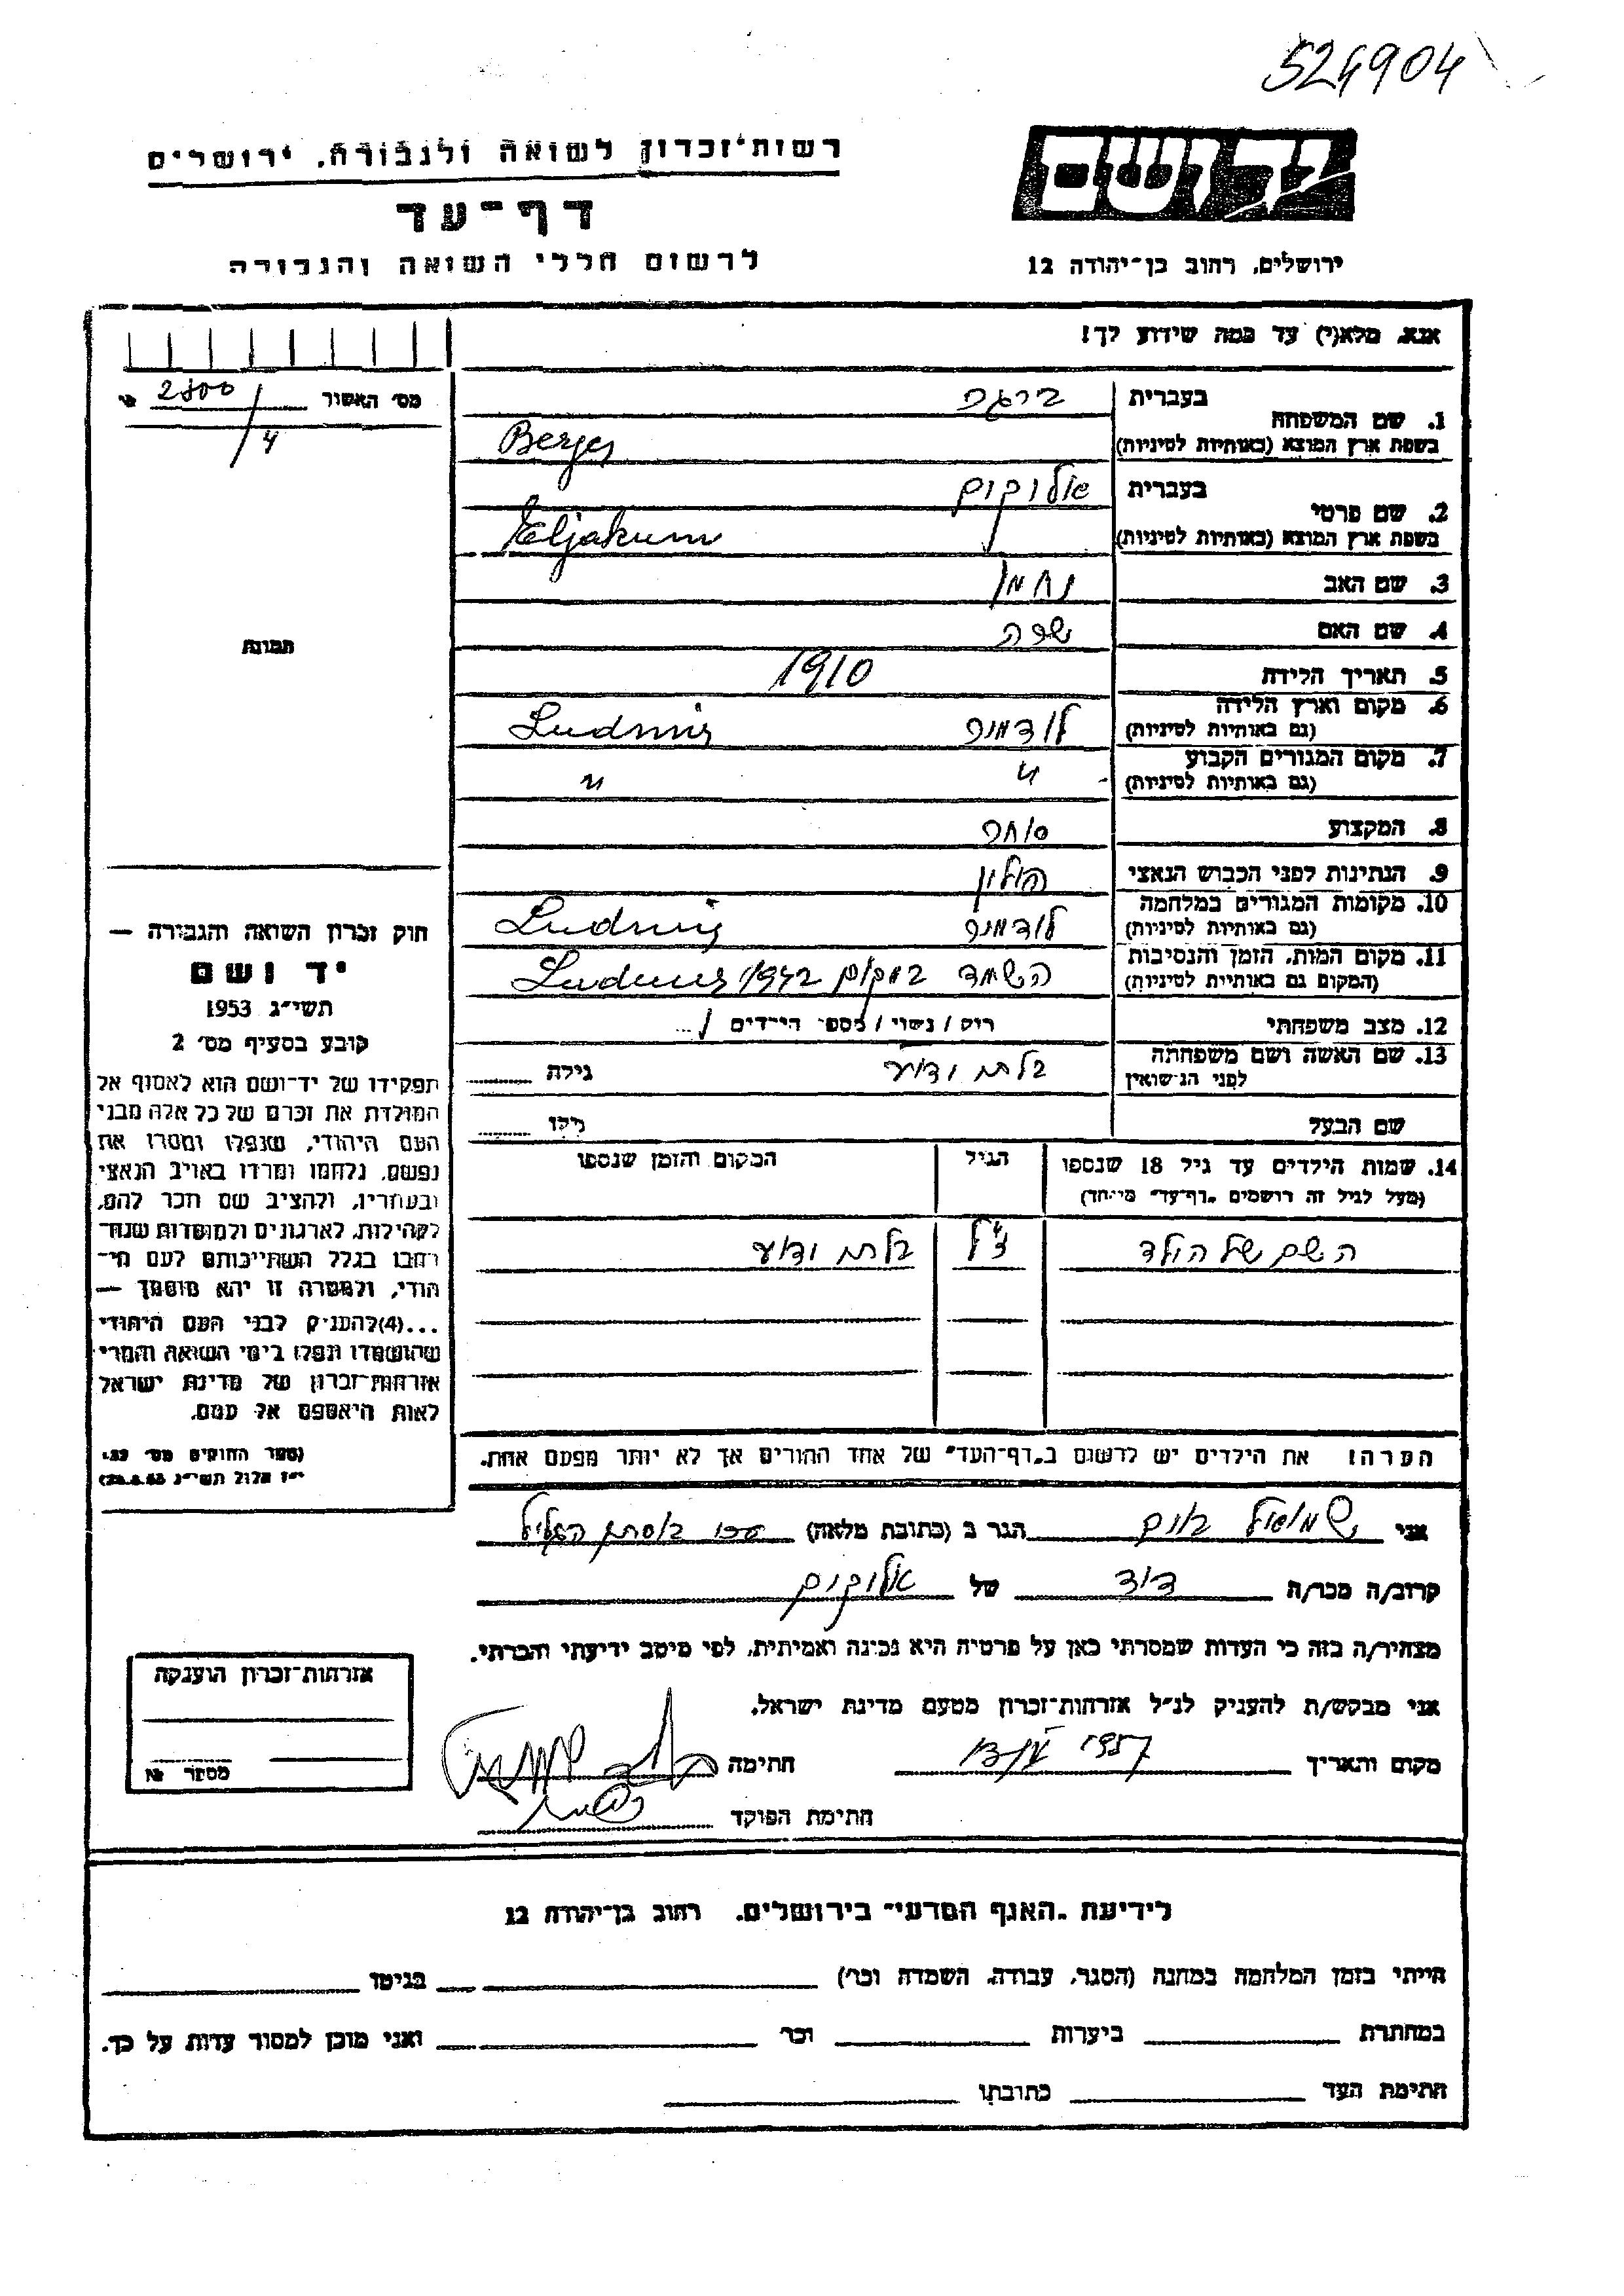 524904
יד ושם
ירושלים, רחוב בן־יהודה 12
רשות־זכרון לשואה ולגבורה, ירושלים
דף־עד
לרשום חללי השואה והגבורה
אנא, מלא(י) עד כמה שידוע לך!
מס׳ האשור 2800/4
1. שם המשפחה
בעברית
בשפת ארץ המוצא (באותיות לטיניות) Berger
2. שם פרטי
בעברית אליקום
בשפת ארץ המוצא (באותיות לטיניות) Eljakum
3. שם האב נחמן
4. שם האם שרה
5. תאריך הלידה 1910
6. מקום וארץ הלידה
(גם באותיות לטיניות)
7. מקום המגורים הקבוע
(גם באותיות לטיניות) " "
8. המקצוע סוחר
9. הנתינות לפני הכבוש הנאצי פולין
10. מקומות המגורים במלחמה
(גם באותיות לטיניות)
11. מקום המות, הזמן והנסיבות
(המקום גם באותיות לטיניות) 1942
12. מצב משפחתי רוק / נשוי / מספר הילדים 1
13. שם האשה ושם משפחתה
לפני הנשואין בלתי ידוע גילה
שם הבעל גילו
14. שמות הילדים עד גיל 18 שנספו הגיל המקום והזמן שנספו
(מעל לגיל זה רושמים „דף־עד" מיוחד)
השם של הילד בלתי ידוע
הערה: את הילדים יש לרשום ב„דף־העד" של אחד ההורים אך לא יותר מפעם אחת.
תמונה
חוק זכרון השואה והגבורה —
יד ושם
תשי״ג 1953
קובע בסעיף מס׳ 2
תפקידו של יד־ושם הוא לאסוף אל
המולדת את זכרם של כל אלה מבני
העם היהודי, שנפלו ומסרו את
נפשם, נלחמו ומרדו באויב הנאצי
ובעוזריו, ולהציב שם וזכר להם,
לקהילות, לארגונים ולמוסדות שנח־
רבו בגלל השתייכותם לעם הי־
הודי, ולמטרה זו יהא מוסמך —
...(4) להעניק לבני העם היהודי
שהושמדו ונפלו בימי השואה והמרי
אזרחות־זכרון של מדינת ישראל
לאות היאספם אל עמם.
אני שמואל הגר ב (כתובת מלאה)
קרוב/ה מכר/ה דוד של אליקום
מצהיר/ה בזה כי העדות שמסרתי כאן על פרטיה היא נכונה ואמיתית, לפי מיטב ידיעתי והכרתי.
אני מבקש/ת להעניק לנ״ל אזרחות־זכרון מטעם מדינת ישראל.
מקום ותאריך חתימה
חתימת הפוקד
אזרחות־זכרון הוענקה
מספר №
לידיעת „האגף המדעי" בירושלים, רחוב בן־יהודה 12
הייתי בזמן המלחמה במחנה (הסגר, עבודה, השמדה וכו׳) בגיטו
במחתרת ביערות וכו׳ ואני מוכן למסור עדות על כך.
חתימת העד כתובתו